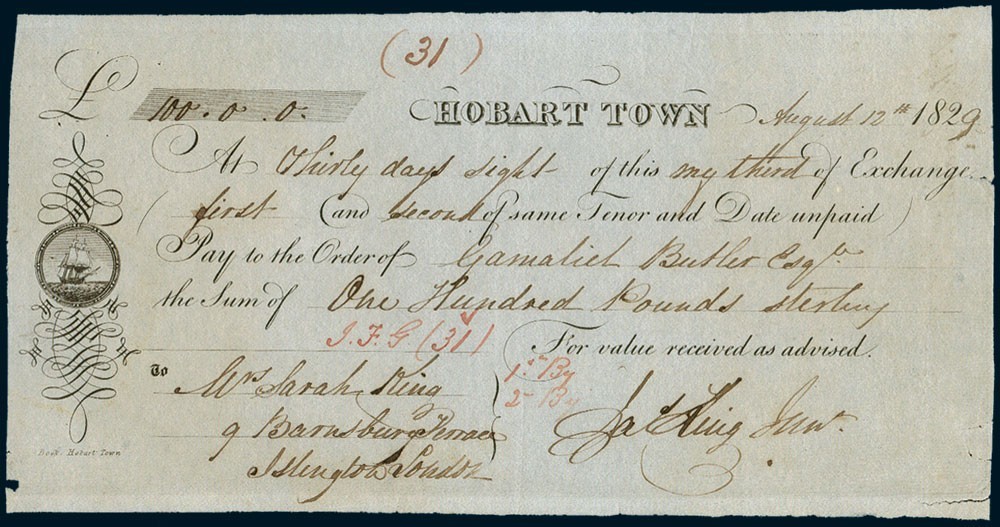 (31)
£ 100 . 0 . 0. HOBART TOWN August 12th 1829
At Thirty days sight of this my third of Exchange
(first and second of same Tenor and Date unpaid)
Pay to the Order of Gamaliel Butler Esqr
the Sum of One Hundred Pounds sterling
J. F. G (31) For value received as advised.
To Mrs Sarah King
1st By
2 By
9 Barnsbury Terrace
Islington London
Jas King Junr.
Hobart Town